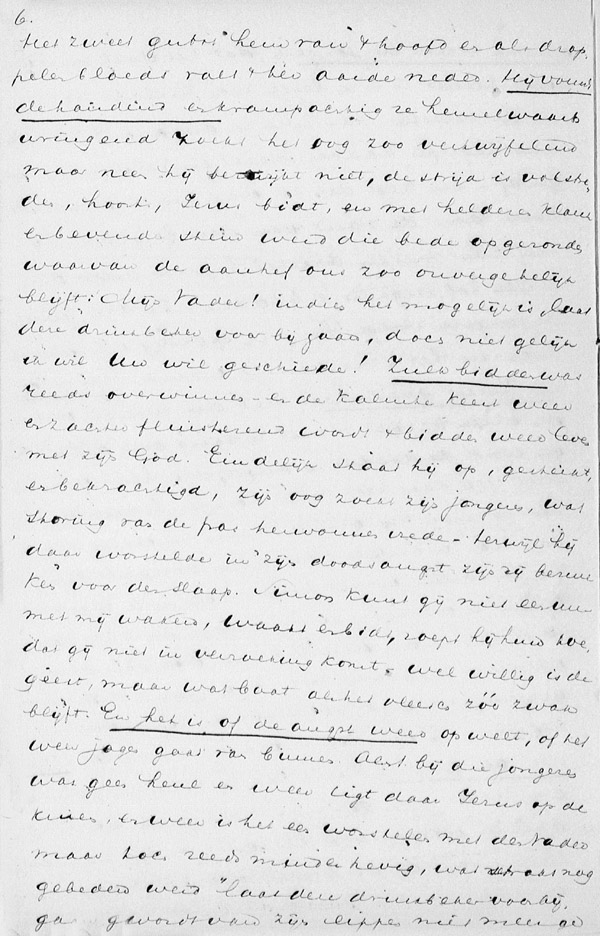 6.
Het zweet gutst hem van t hoofd en als drop
pelen bloeds valt t hed aarde neder. Hij vouwt
de handen en krampachtig ze hemelwaarts
wringend zoekt het oog zoo vertwijfelend
maar neen hij bezwijkt niet, de strijd is volstre
den, hoort, Jezus bidt, en met heldere klank
en bevende stem werd die bede opgezonden
waarvan de aanhef ons zoo onvergetelijk
blijft: Mijn Vader! indien het mogelijk is, laat
deze drinkbeker voorbij gaan, doch niet gelijk
ik wil Uw wil geschiede! Zulk bidden was
reeds overwinnen - en de kalmte keert weer
en zachter fluisterend wordt t bidden weer leven
met zijn God. Eindelijk staat hij op, gesterkt,
en bekrachtigd, zijn oog zoekt zijn jongeren, wat
storing van de pas herwonnen vrede - terwijl hij
daar worstelde in zijn doodsangst zijn zij bezwe
ken voor den slaap. Simon kunt gij niet een uur
met mij waken, waakt en bidt, roept hij hun toe,
dat gij niet in verzoeking komt - wel willig is de
geest, maar wat baat als het vleesch zóó zwak
blijft. En het is of de angst weer opwelt, of het
weer jagen gaat van binnen. Acht bij die jongeren
was geen heul en weer ligt daar Jezus op de
knieën, en weer is het een worstelen met den Vader
maar toch reeds minder hevig, wat straks nog
gebeden werd "laat den drinkbeker voorbij
gaan wordt van zijn lippen niet meer ge